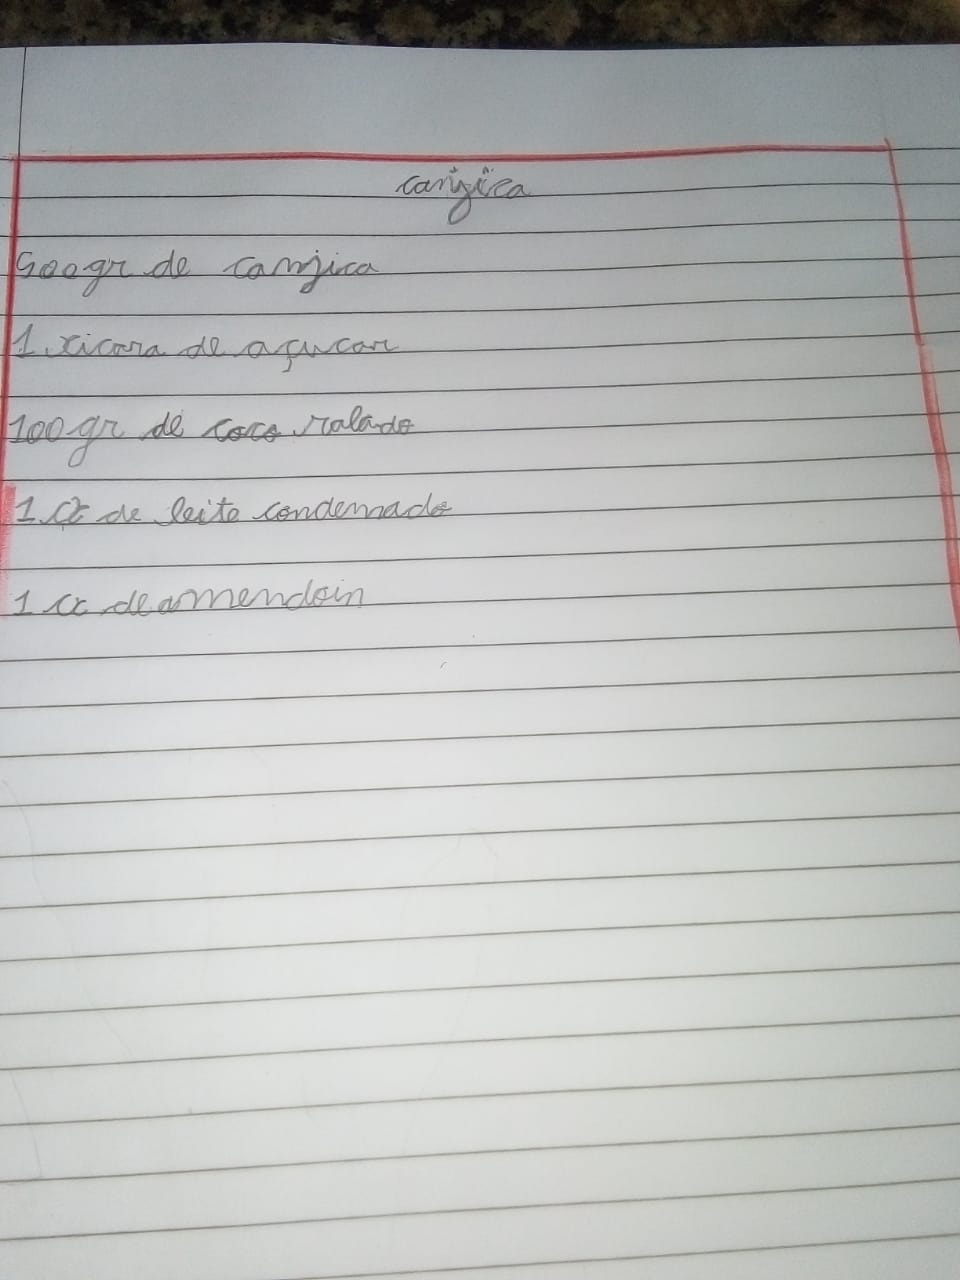 canjica
500gr de canjica
1 xicara de açucar
100gr de coco ralado
1 cx de leite condensado
1 cx de amendoin